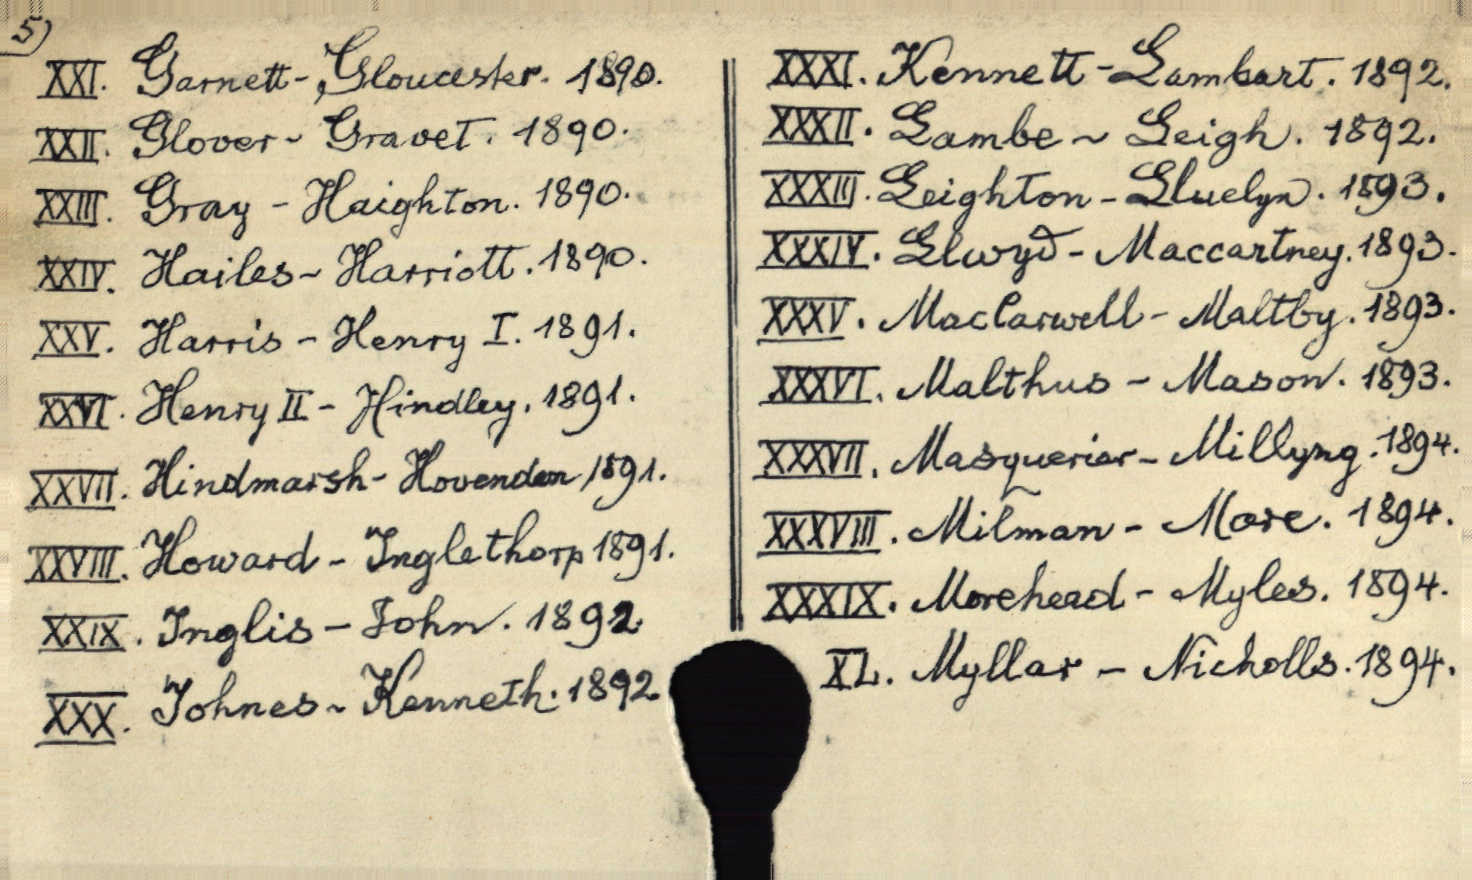 5)
XXI. Garnett - Gloucester. 1890.
XXII. Glover - Gravet. 1890.
XXIII. Gray - Haighton. 1890.
XXIV. Hailes - Harriott. 1890.
XXV. Harris - Henry I. 1891.
XXVI. Henry II - Hindley. 1891.
XXVII. Hindmarsh - Hovenden 1891.
XXVIII. Howard - Inglethorp 1891.
XXIX. Inglis - John. 1892.
XXX. Johnes - Kenneth. 1892.
XXXI. Kennett - Lambart. 1892.
XXXII. Lambe - Leigh. 1892.
XXXIII. Leighton - Lluelyn. 1893.
XXXIV. Llwyd - Maccartney. 1893.
XXXV. MacCarwell - Maltby. 1893.
XXXVI. Malthus - Mason. 1893.
XXXVII. Masquerier - Millyng. 1894.
XXXVIII. Milman - More. 1894.
XXXIX. Morehead - Myles. 1894.
XL. Myllar - Nicholls. 1894.